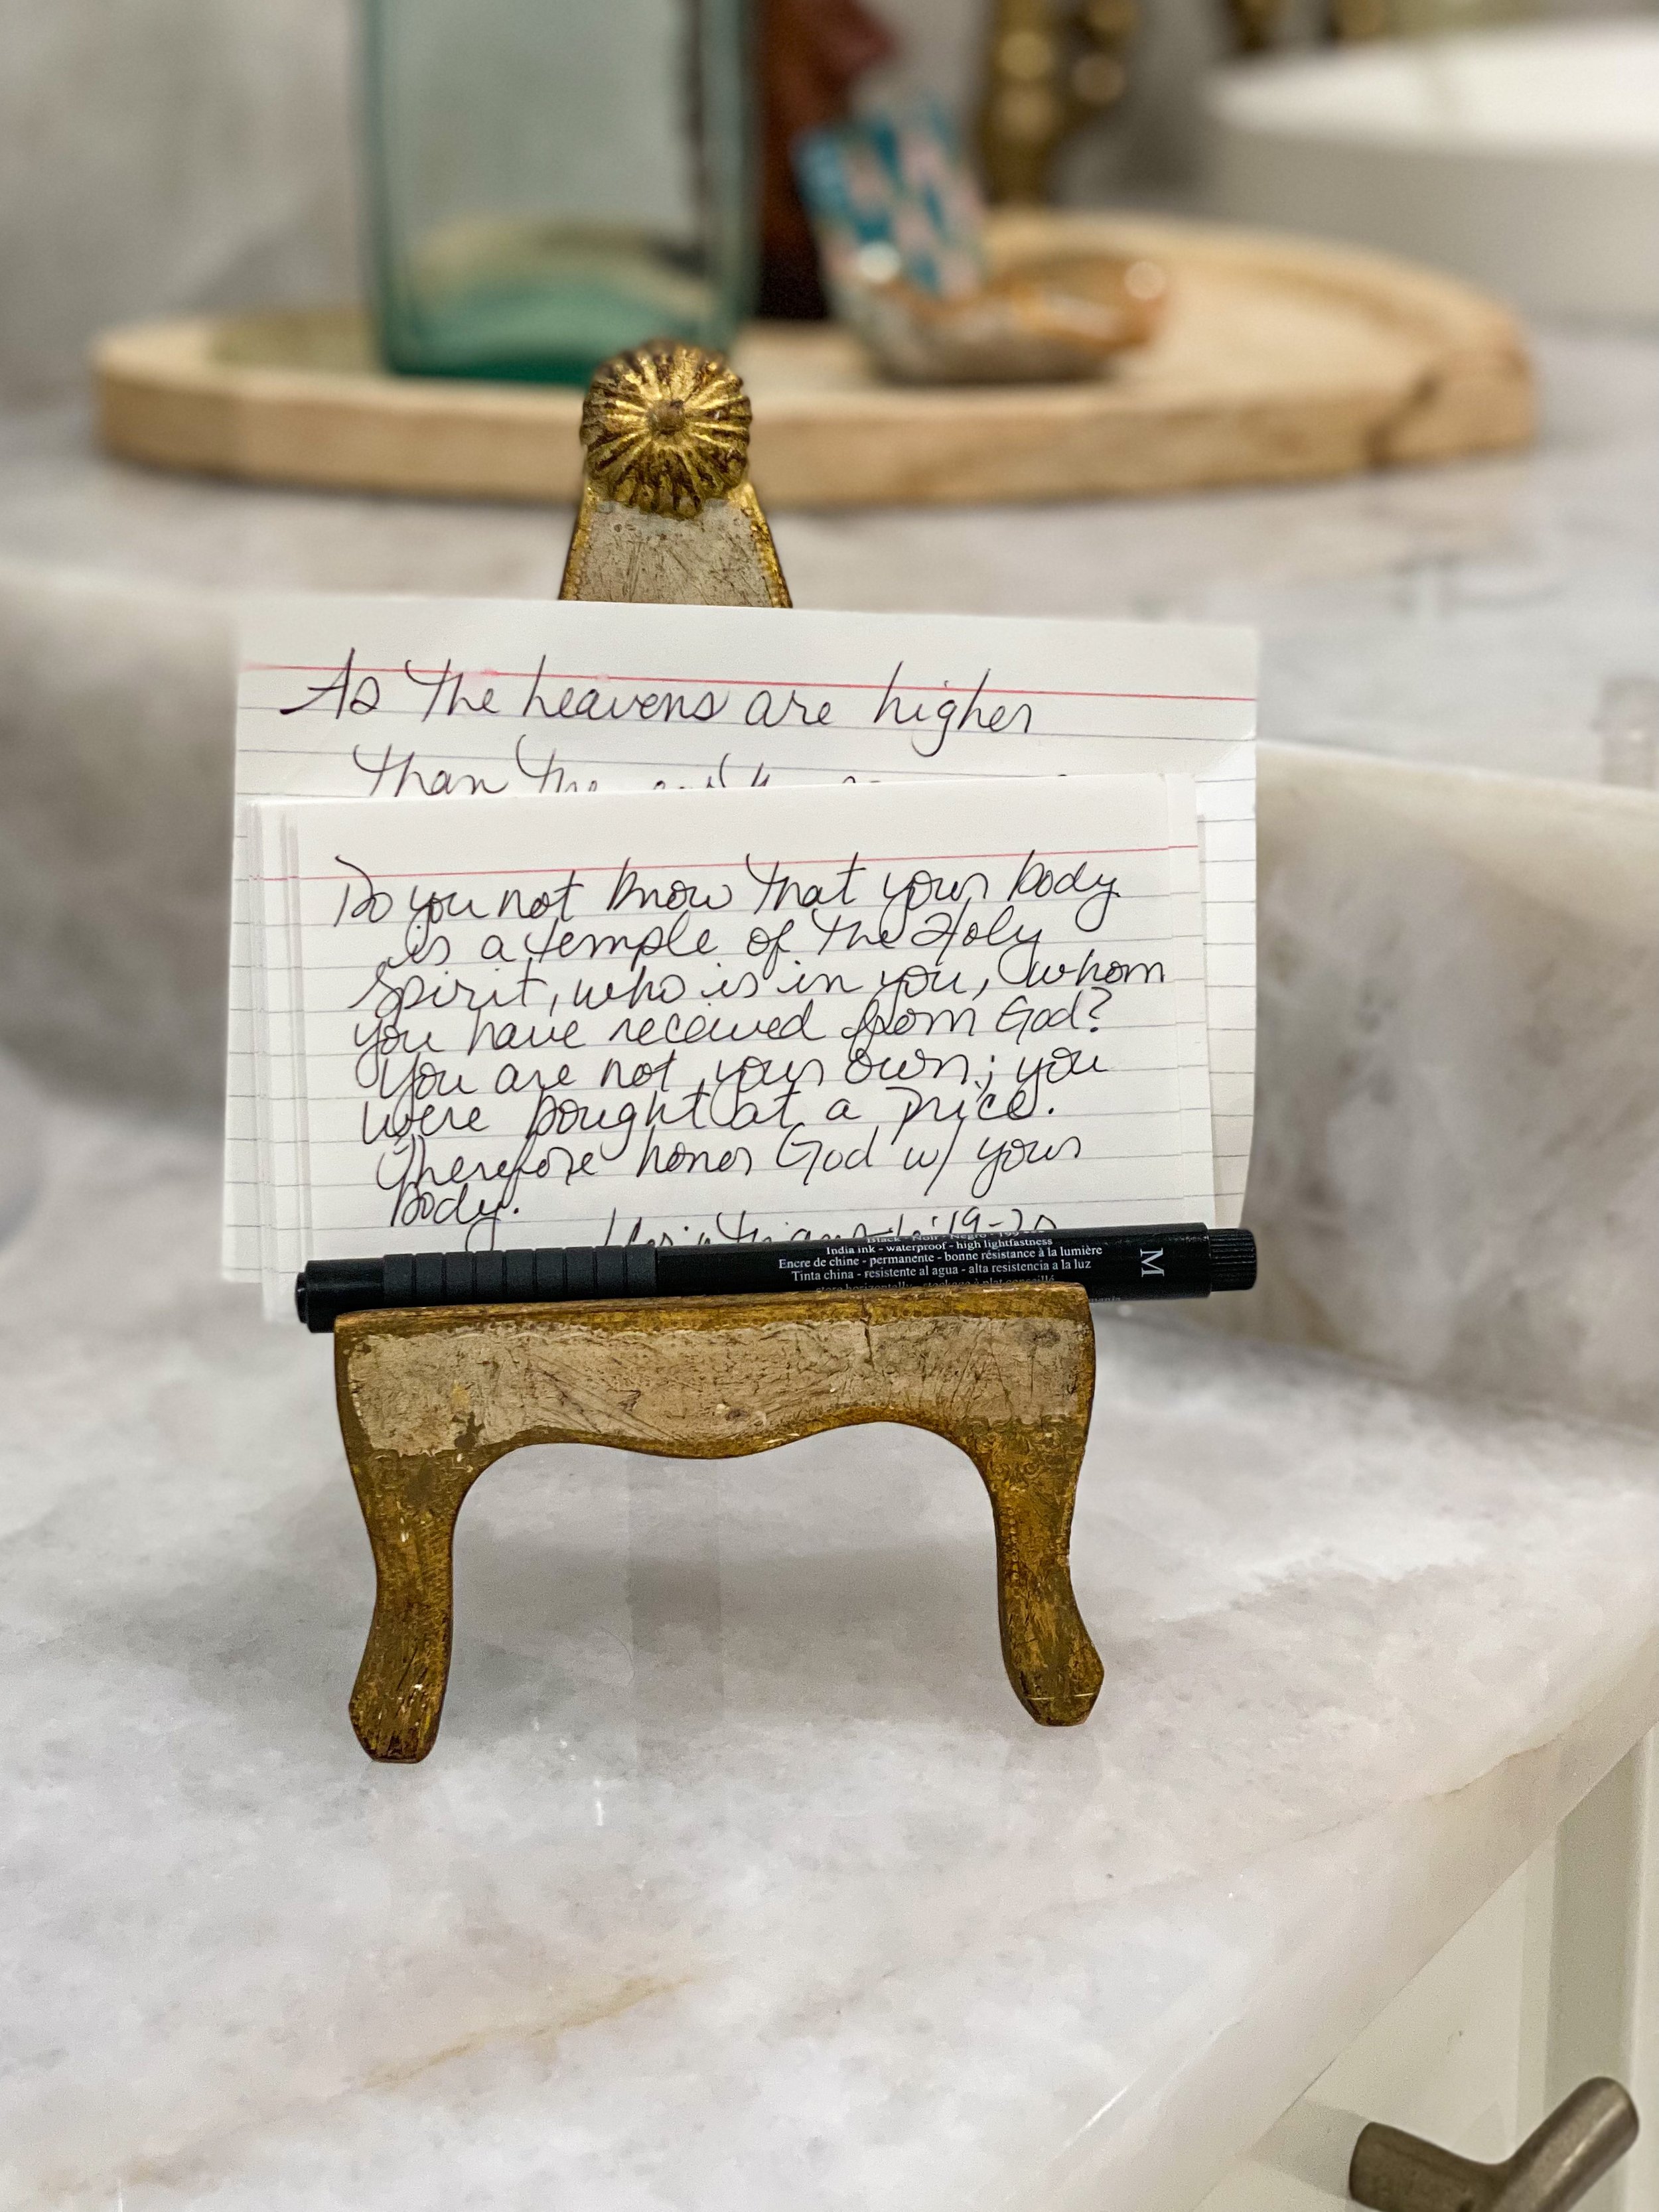 As the heavens are higher
than the
Do you not know that your body
is a temple of the Holy
Spirit, who is in you, whom
you have received from God?
You are not your own; you
were bought at a price.
Therefore honor God w/ your
body.
19-20
Black - Noir - Negro
India ink - waterproof - high lightfastness
Encre de chine - permanente - bonne résistance à la lumière
Tinta china - resistente al agua - alta resistencia a la luz
store horizontally - stockage à plat conseillé
M